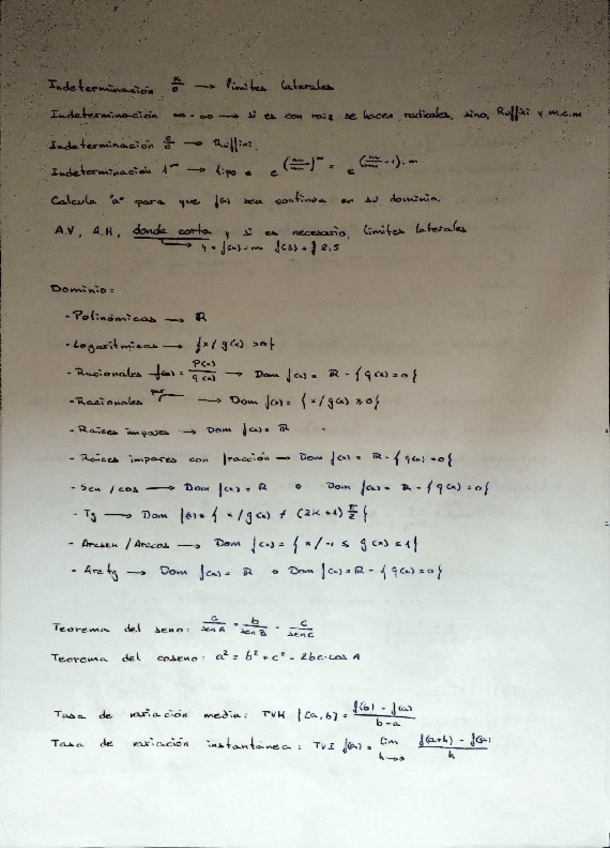 Indeterminación k/0 → límites laterales
Indeterminación ∞ - ∞ → si es con raiz se hacen radicales, sino, Ruffini y m.c.m
Indeterminación 0/0 → Ruffini.
Indeterminación 1^∞ → tipo e e^(
Calcula "a" para que f(x) sea continua en su dominio.
A.V, A.H, donde corta y si es necesario, límites laterales
Dominio:
- Polinómicas → ℝ
- Logarítmicas → {x / g(x) > 0}
- Racionales f(x) = P(x)/Q(x) → Dom f(x) = ℝ - {Q(x) = 0}
- Racionales par√ → Dom f(x) = {x / g(x) ≥ 0}
- Raíces impares → Dom f(x) = ℝ
- Raíces impares con fracción → Dom f(x) = ℝ - {Q(x) = 0}
- Sen / cos → Dom f(x) = ℝ o Dom f(x) = ℝ - {Q(x) = 0}
- Tg → Dom f(x) = {x / g(x) ≠ (2k + 1) π/2}
- Arcsen / Arccos → Dom f(x) = {x / -1 ≤ g(x) ≤ 1}
- Arctg → Dom f(x) = ℝ o Dom f(x) = ℝ - {Q(x) = 0}
Teorema del seno: a/sen A = b/sen B = c/sen C
Teorema del coseno: a² = b² + c² - 2bc·cos A
Tasa de variación media: TVM f[a,b] = f(b) - f(a) / b - a
Tasa de variación instantánea: TVI f(a) = lim h→0 f(a+h) - f(a) / h